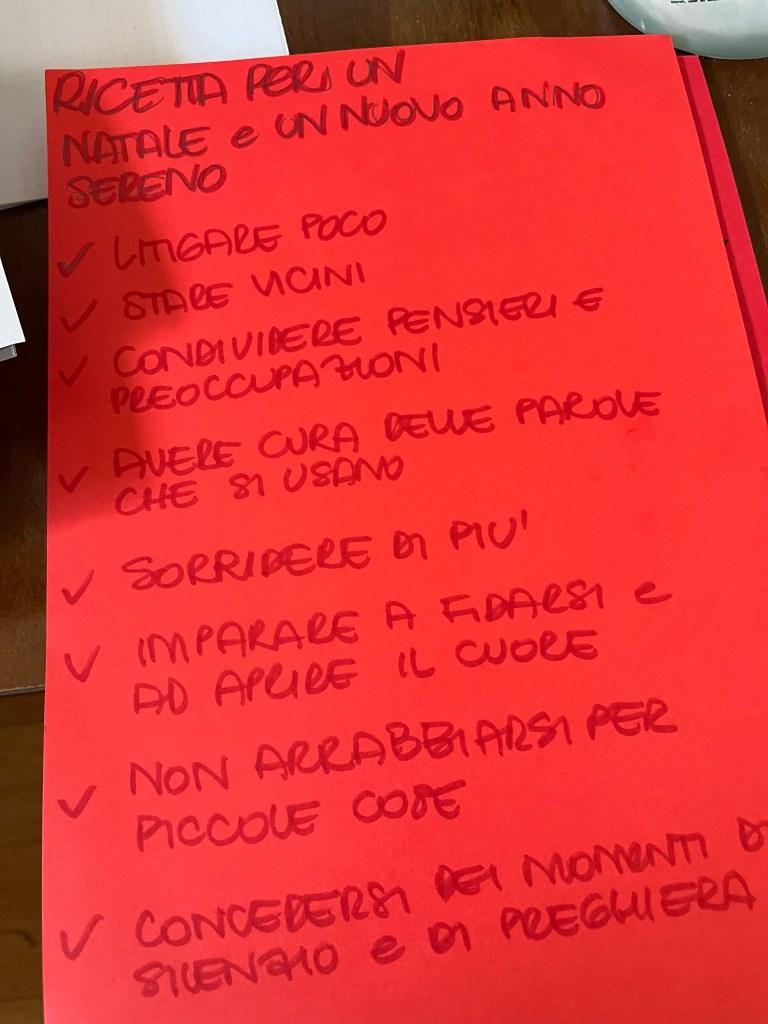 RICETTA PER UN
NATALE e UN NUOVO ANNO
SERENO
✓ LITIGARE POCO
✓ STARE VICINI
✓ CONDIVIDERE PENSIERI E
PREOCCUPAZIONI
✓ AVERE CURA DELLE PAROLE
CHE SI USANO
✓ SORRIDERE DI PIU'
✓ IMPARARE A FIDARSI e
AD APRIRE IL CUORE
✓ NON ARRABBIARSI PER
PICCOLE COSE
✓ CONCEDERSI DEI MOMENTI DI
SILENZIO e DI PREGHIERA